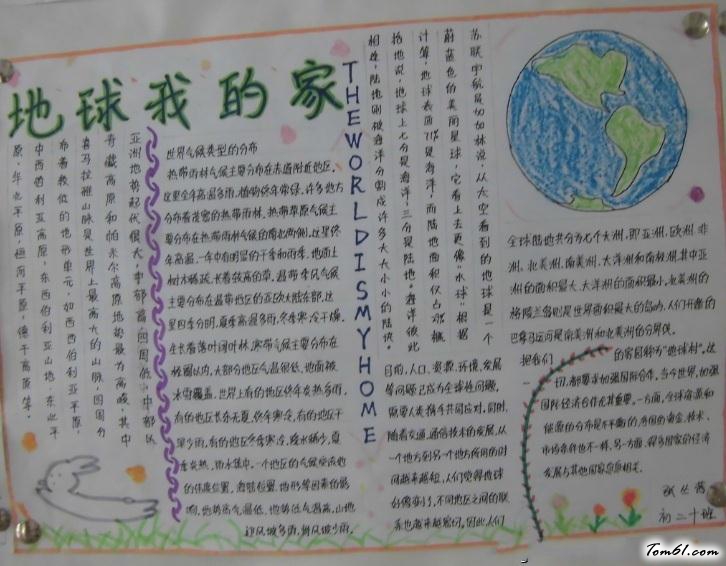 地球我的家
THEWORLDISMYHOME
亚洲地势起伏很大,中部高,四周低,中部以
青藏高原和帕米尔高原地势最为高峻,其中
喜马拉雅山脉是世界上最高大的山脉,四周分
布着较低的地形单元,如西西伯利亚平原,
中西伯利亚高原,东西伯利亚山地,东北平
原,华北平原,恒河平原,德干高原等。
世界气候类型的分布
热带雨林气候主要分布在赤道附近地区,
这里全年高温多雨,植物终年常绿,许多地方
分布着茂密的热带雨林。热带草原气候主
要分布在热带雨林气候的南北两侧,这里终
年高温,一年中有明显的干季和雨季。地面上
树木稀疏,长着较高的草。温带季风气候
主要分布在温带地区的亚欧大陆东部,这
里四季分明,夏季高温多雨,冬季寒冷干燥。
生长着落叶阔叶林。寒带气候主要分布在
极圈以内,大部分地区气温很低,地面被
冰雪覆盖。世界上有的地区终年炎热多雨,
有的地区长冬无夏,终年寒冷,有的地区干
旱少雨,有的地区冬季寒冷,降水稀少,夏
季炎热,雨水集中。一个地区的气候受该地
的纬度位置,海陆位置,地形等因素的影
响,地势高气温低,地势低气温高,山地
迎风坡多雨,背风坡少雨。
苏联宇航员加加林说:从太空看到的地球是一个
蔚蓝色的美丽星球,它看上去更像“水球”根据
计算,地球表面71%是海洋,而陆地面积仅占29%概
括地说,地球上七分是海洋,三分是陆地。海洋彼此
相连,陆地则被海洋分割成许多大大小小的陆块。
目前,人口、资源、环境、发展
等问题已成为全球性问题,
需要人类携手共同应对,同时,
随着交通,通信技术的发展,从
一个地方到另一个地方所用的时
间越来越短,人们觉得地球
好像变小了,不同地区之间的联
系也越来越密切,因此,人们
全球陆地共分为七个大洲,即亚洲、欧洲、非
洲、北美洲、南美洲、大洋洲和南极洲,其中亚
洲的面积最大,大洋洲的面积最小,北美洲的
格陵兰岛则是世界面积最大的岛屿,人们开凿的
巴拿马运河是南美洲和北美洲的分界线。
把我们的家园称为“地球村”,这
一切,都要求加强国际合作,当今世界,加强
国际经济合作尤其重要。一方面,全球资源和
能源的分布是不平衡的,各国的资金、技术、
市场条件也不一样,另一方面,得多国家的经济
发展与其他国家息息相关。
初二十班
Tom61.com